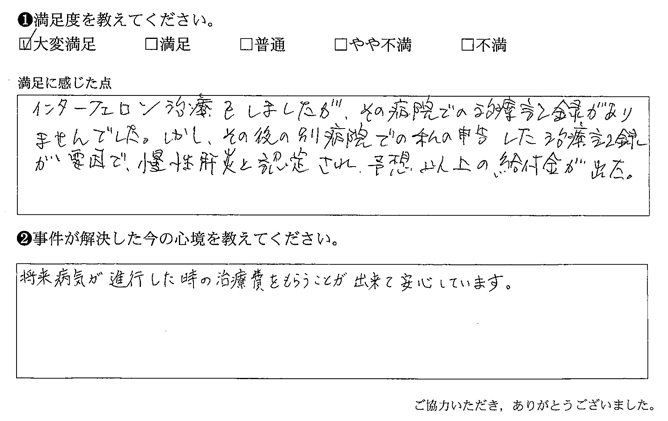 ❶満足度を教えてください。
☑大変満足 □満足 □普通 □やや不満 □不満
満足に感じた点
インターフェロン治療をしましたが、その病院での治療記録があり
ませんでした。しかし、その後の別病院での私の申告した治療記録
が要因で、慢性肝炎と認定され、予想以上の給付金が出た。
❷事件が解決した今の心境を教えてください。
将来病気が進行した時の治療費をもらうことが出来て安心しています。
ご協力いただき，ありがとうございました。